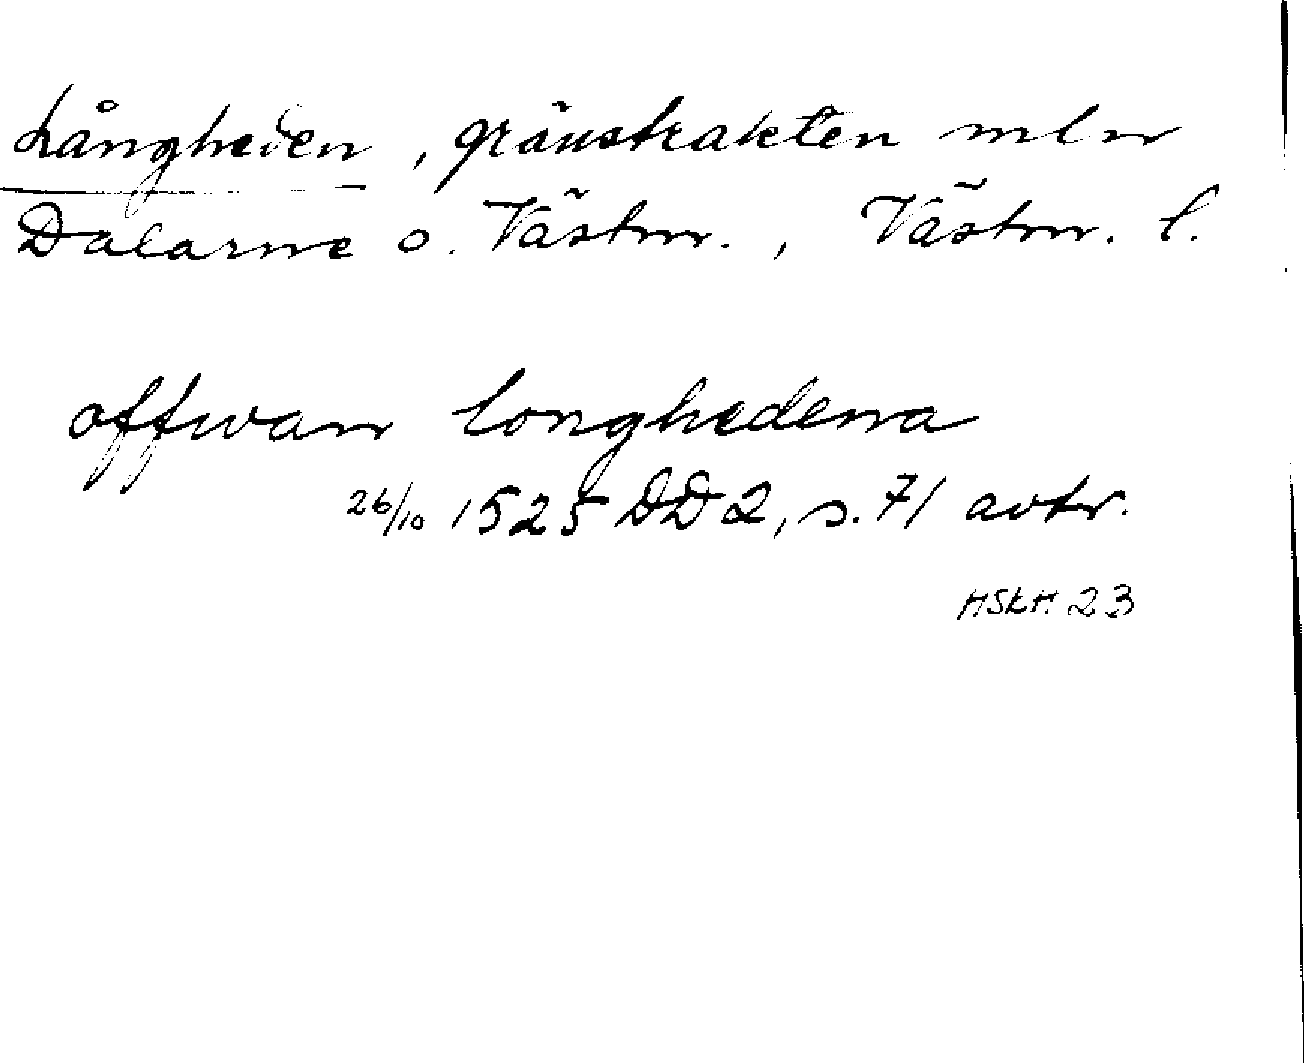 Långheden, gränstrakten mln
Dalarne o. Västm., Västm. l.
offwan longhedena
26/10 1525 DD 2, s. 71 avtr.
HSkH. 23